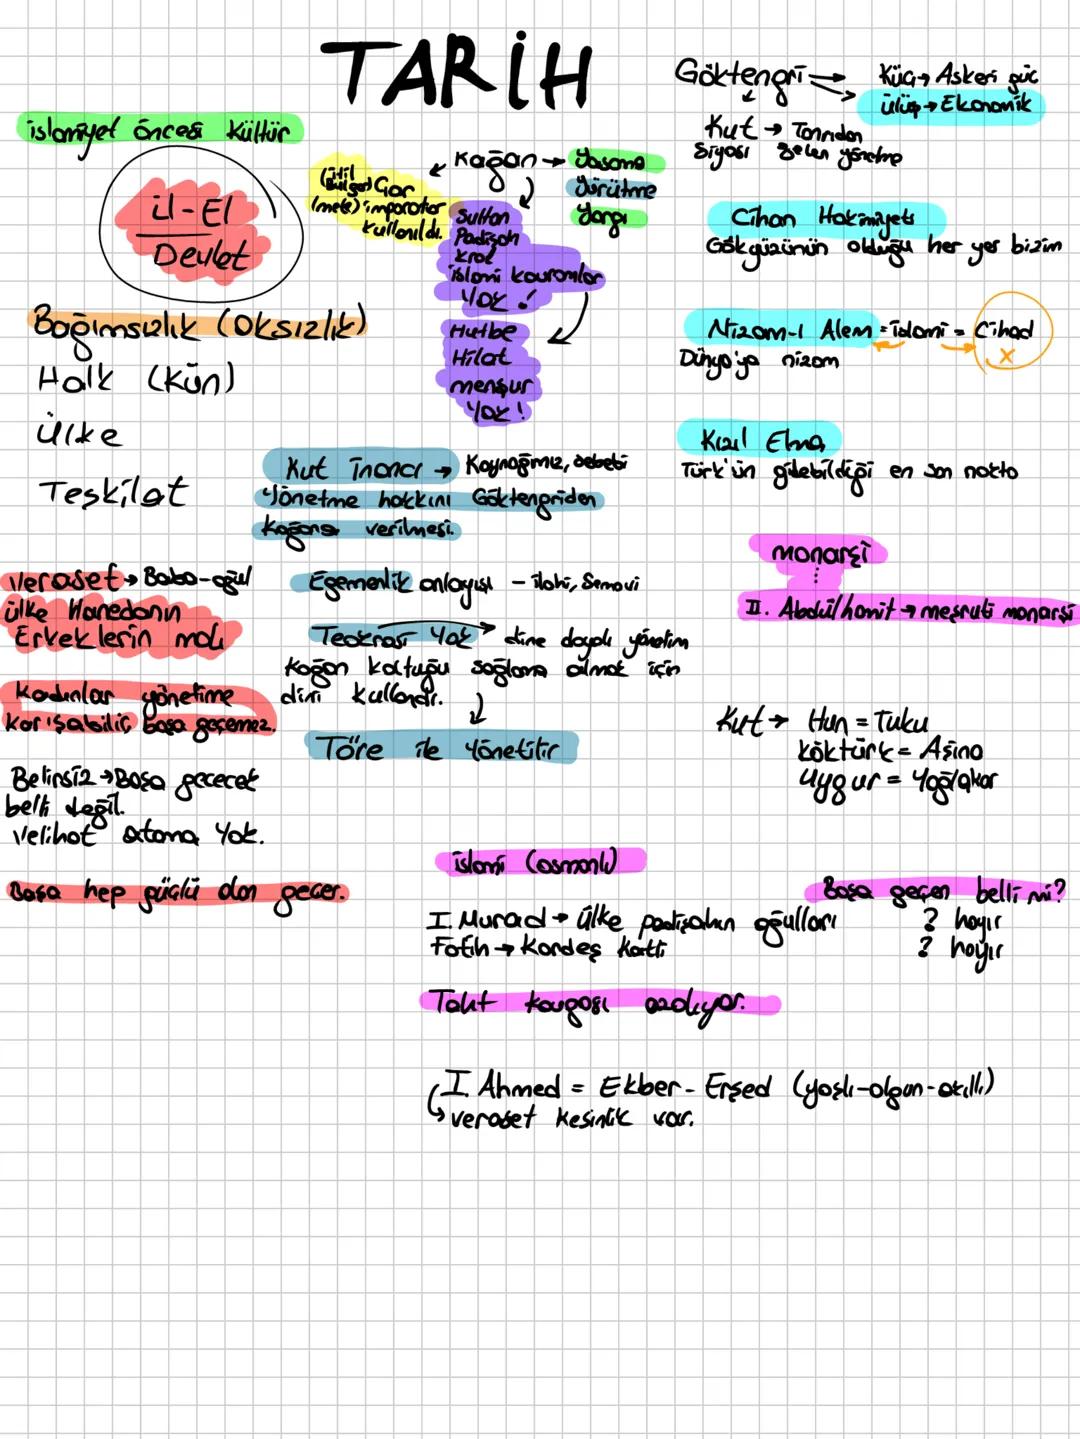 TARİH
islamiyet öncesi Kültür
il-El
Devlet
Bağımsızlık (Oksızlık)
Halk (Kün)
Ülke
Teşkilat
Veraset → Baba-oğul
ülke Hanedanın
Erkeklerin malı
Kadınlar yönetime
karışabilir, başa geçemez.
Belirsiz → Başa geçecek
belli değil.
Velihat atama Yok.
Başa hep güçlü olan geçer.
Kağan → Yasama
Yürütme
Yargı
(itil Bulgar) Çar
(mete) imparator
kullanıldı.
Sultan
Padişah
Kral
islami kavramlar
YOK !
Hutbe
Hilat
menşur
YOK !
Kut inancı → Kaynağımız, sebebi
Yönetme hakkını Göktengriden
Kağana verilmesi.
Egemenlik anlayışı - ilahi, Semavi
Teokrasi Yok → dine dayalı yönetim
Kağan koltuğu sağlama almak için
dini kullandı.
Töre ile Yönetilir
Göktengri → Küç → Askeri güç
ülüş → Ekonomik
Kut → Tanrıdan
Siyasi gelen yönetme
Cihan Hakimiyeti
Gökyüzünün olduğu her yer bizim
Nizam-ı Alem = islami = Cihad
x
Dünya'ya nizam
Kızıl Elma
Türk'ün gidebildiği en son nokta
monarşi
II. Abdülhamit → meşruti monarşi
Kut → Hun = Tuku
Köktürk = Aşina
Uygur = Yağlakar
islami (osmanlı)
Başa geçen belli mi?
I. Murad → ülke padişahın oğulları ? hayır
Fatih → Kardeş Katli ? hayır
Taht kavgası azalıyor.
I. Ahmed = Ekber - Erşed (yaşlı-olgun-akıllı)
↳ veraset kesinlik var.